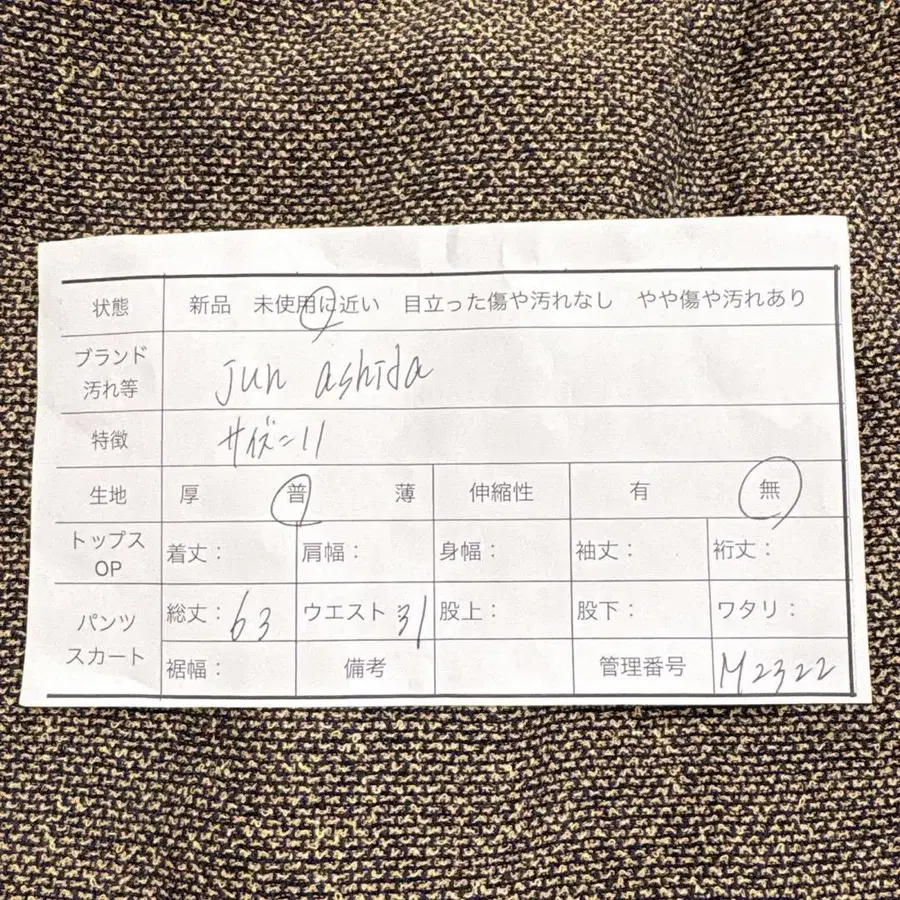 状態 新品 未使用に近い 目立った傷や汚れなし やや傷や汚れあり
ブランド
汚れ等 jun ashida
特徴 サイズ=11
生地 厚 普 薄 伸縮性 有 無
トップス
OP 着丈: 肩幅: 身幅: 袖丈: 裄丈:
パンツ
スカート 総丈:63 ウエスト:31 股上: 股下: ワタリ:
裾幅: 備考 管理番号 M2322